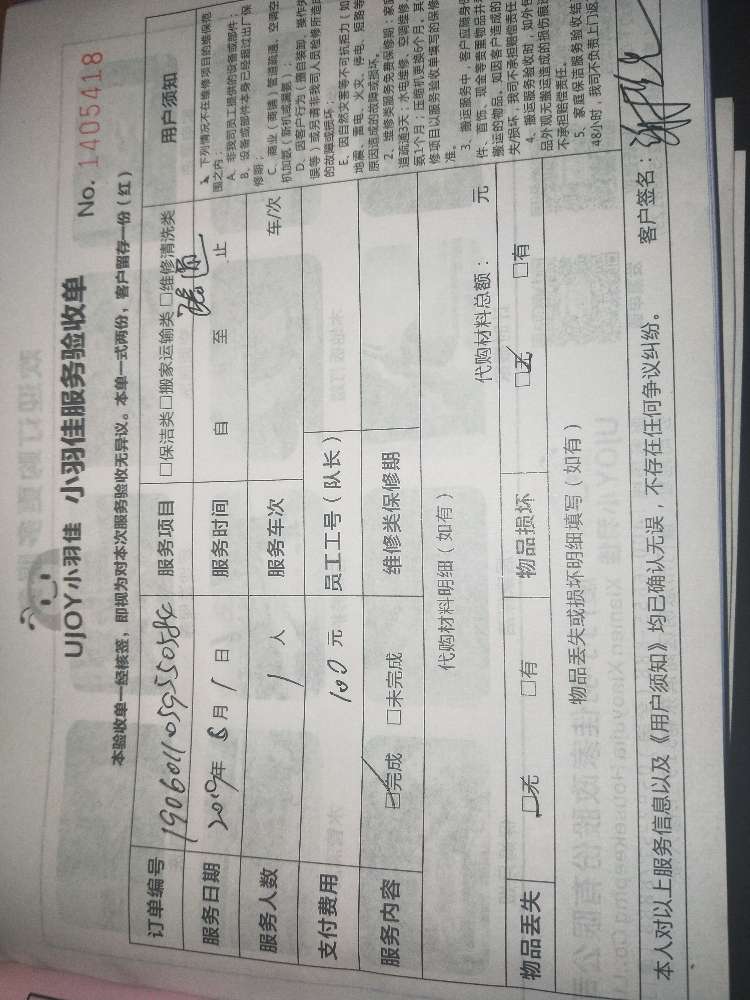 UJOY小羽佳 小羽佳服务验收单
No. 1405418
本验收单一经核签，即视为对本次服务验收无异议。本单一式两份，客户留存一份（红）
订单编号 服务项目 □保洁类□搬家运输类 □维修清洗类
服务日期 2019年 月 1 日 服务时间 自 至 止
服务人数 1 人 服务车次 车/次
支付费用 100 元 员工工号（队长）
服务内容 ☑完成 □未完成 维修类保修期
代购材料明细（如有） 代购材料总额： 元
物品丢失 ☑无 □有 物品损坏 ☑无 □有
物品丢失或损坏明细填写（如有）
本人对以上服务信息以及《用户须知》均已确认无误，不存在任何争议纠纷。 客户签名：
用户须知
1、下列情况不在维修项目的维保范
围之内：
A、非我司员工提供的设备或部件；
B、设备或部件本身已经超过出厂保
修期；
C、商业（商铺）管道疏通、空调空
机加氨（新机或漏氨）；
D、因客户行为（擅自装卸、操作失
误等）或另请非我司人员检修所造成
的故障或损坏；
E、因自然灾害等不可抗拒力（如
地震、雷电、火灾、停电、短路等
原因造成的故障或损坏。
2、维修类服务免费保修期：家庭
道疏通3天；水电维修、空调维修
氨1个月；压缩机更换6个月，其
修项目以服务验收单填写的保修
准。
3、搬运服务中，客户应随身
件、首饰、现金等贵重物品并
搬运的物品，如因客户造成的
失/损坏，我司不承担赔偿责任
4、搬运服务验收时，如外包
品外观无搬运造成的损伤痕迹
不承担赔偿责任。
5、家庭保洁服务验收结
48小时，我司不负责上门返